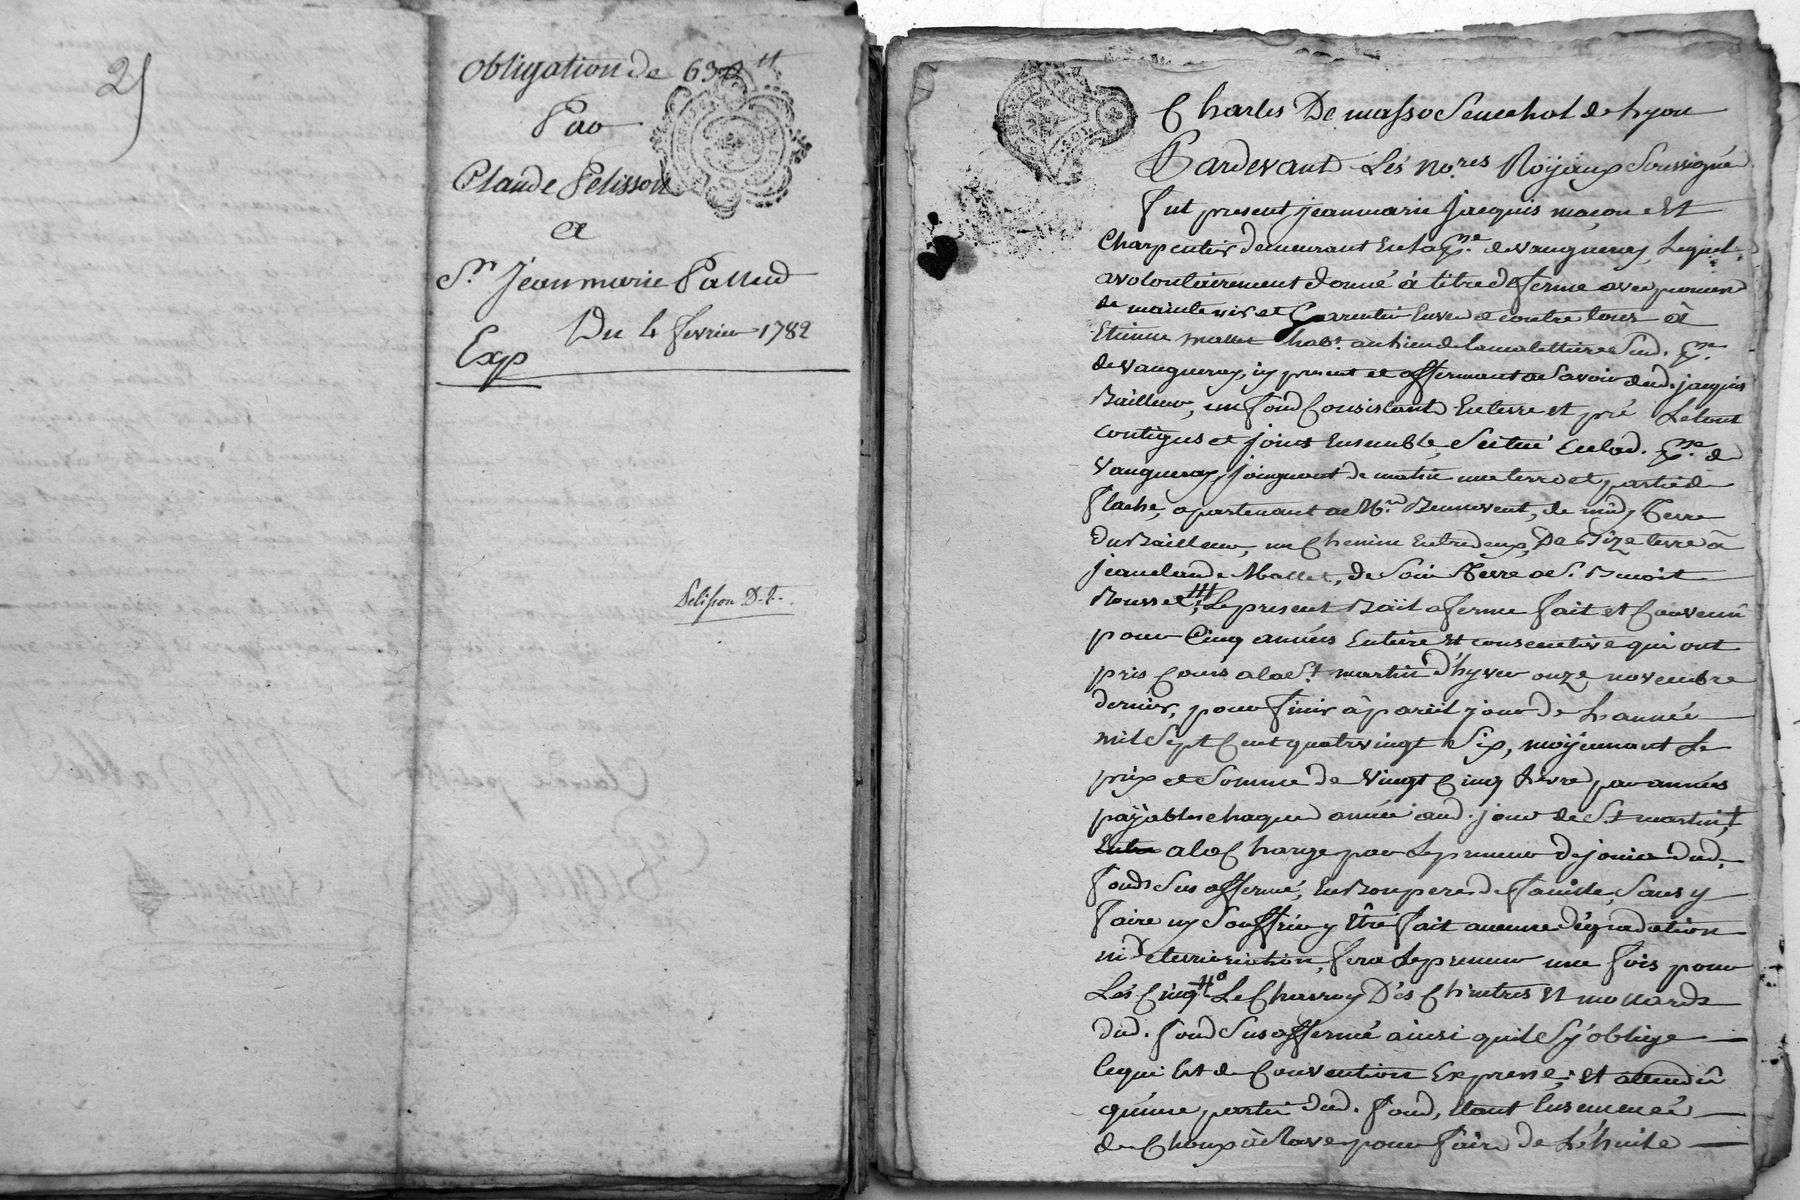 25
Obligation de 630 ₶
Par
Claude Pelisson
a
Sr. Jeanmarie Pallud
Du 4 fevrier 1782
Exp
Pelisson D. L.
Charles De masso Senechal de Lyon
Pardevant Les no.res Royaux Soussignés
fut present jeanmarie jacquis maçon Et
Charpentier demeurant En la p.sse de vaugneray, Lequel
a volontairement donné à titre de ferme avec promesse
de maintenir et Garentir Envers et contre tous à
Etienne mallet hab.t au lieu de Lamalettiere Sud. p.sse
de vaugneray, icy present et affermant a Savoir dud. jacquis
Bailleur, un fond Consistant En terre et pré Le tout
contigus et joint Ensemble, Scitué En lad. p.sse de
Vaugneray, joignant de matin une terre et partie de
flache, apartenant a M.r Bennevent, de midy terre
du Bailleur, un Chemin Entredeux, De Bize terre à
jeanclaude Mallet, de Soir terre a S. Benoit
Rousset, Le present Bail a ferme fait et Convenu
pour Cinq années Entiere Et consecutive qui ont
pris Cours a la S.t martin d'hyver onze novembre
dernier, pour finir à pareil jour de L'année
mil Sept Cent quatrevingt Six, moÿennant Le
prix et Somme de Vingt Cinq Livre par années
païables chaque année aud. jour de S.t martin,
Entre a la Charge par Le preneur de jouir dud.
fonds Sus affermé, En Bon pere de famille, Sans y
faire ny Souffrir y Être fait aucune dégradation
ni deterrioration, fera Le preneur une fois pour
Les Cinq Le Charroy Des Chintres Et mollards
dud. fond Sus affermé ainsi quil S'y oblige
Ce qui Est de Convention Expresse; Et attendû
qu'une partie dud. fond, Etant Ensemencé
de Choux à Rave pour faire de L'huile